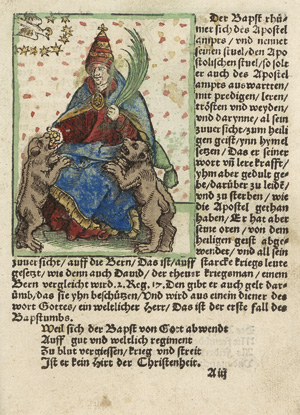 Der Bapst rhü/
met sich des Apostel
ampts / vnd nennet
seinen stuel / den Apo
stolischen stuel / so solt
er auch des Apostel
ampts auswarten /
mit predigen / leren /
trösten vnd weyden /
vnd darynne / al sein
zuuersicht / zum heili
gen geist / ynn hymel
setzen / Das er seiner
wort vñ lere krafft /
yhm aber gedult ge/
be / darüber zu leide/
vnd zu sterben / wie
die Apostel gethan
haben / Er hat aber
seine oren / von dem
heiligen geist abge/
wendet / vnd all sein
zuuersicht / auff die Bern / Das ist / auff starcke kriegs leute
gesetzt / wie denn auch Dauid / der theure kriegsman / einem
Bern vergleicht wird. 2. Reg. 17. Den gibt er auch gelt dar/
umb / das sie yhn beschützen / Vnd wird aus einem diener des
wort Gottes / ein weltlicher Herr / Das ist der erste fall des
Bapstumbs.
Weil sich der Bapst von Got abwendt
Auff gut vnd weltlich regiment
Zu blut vergiessen / krieg vnd streit
Ist er kein Hirt der Christenheit.
A iij